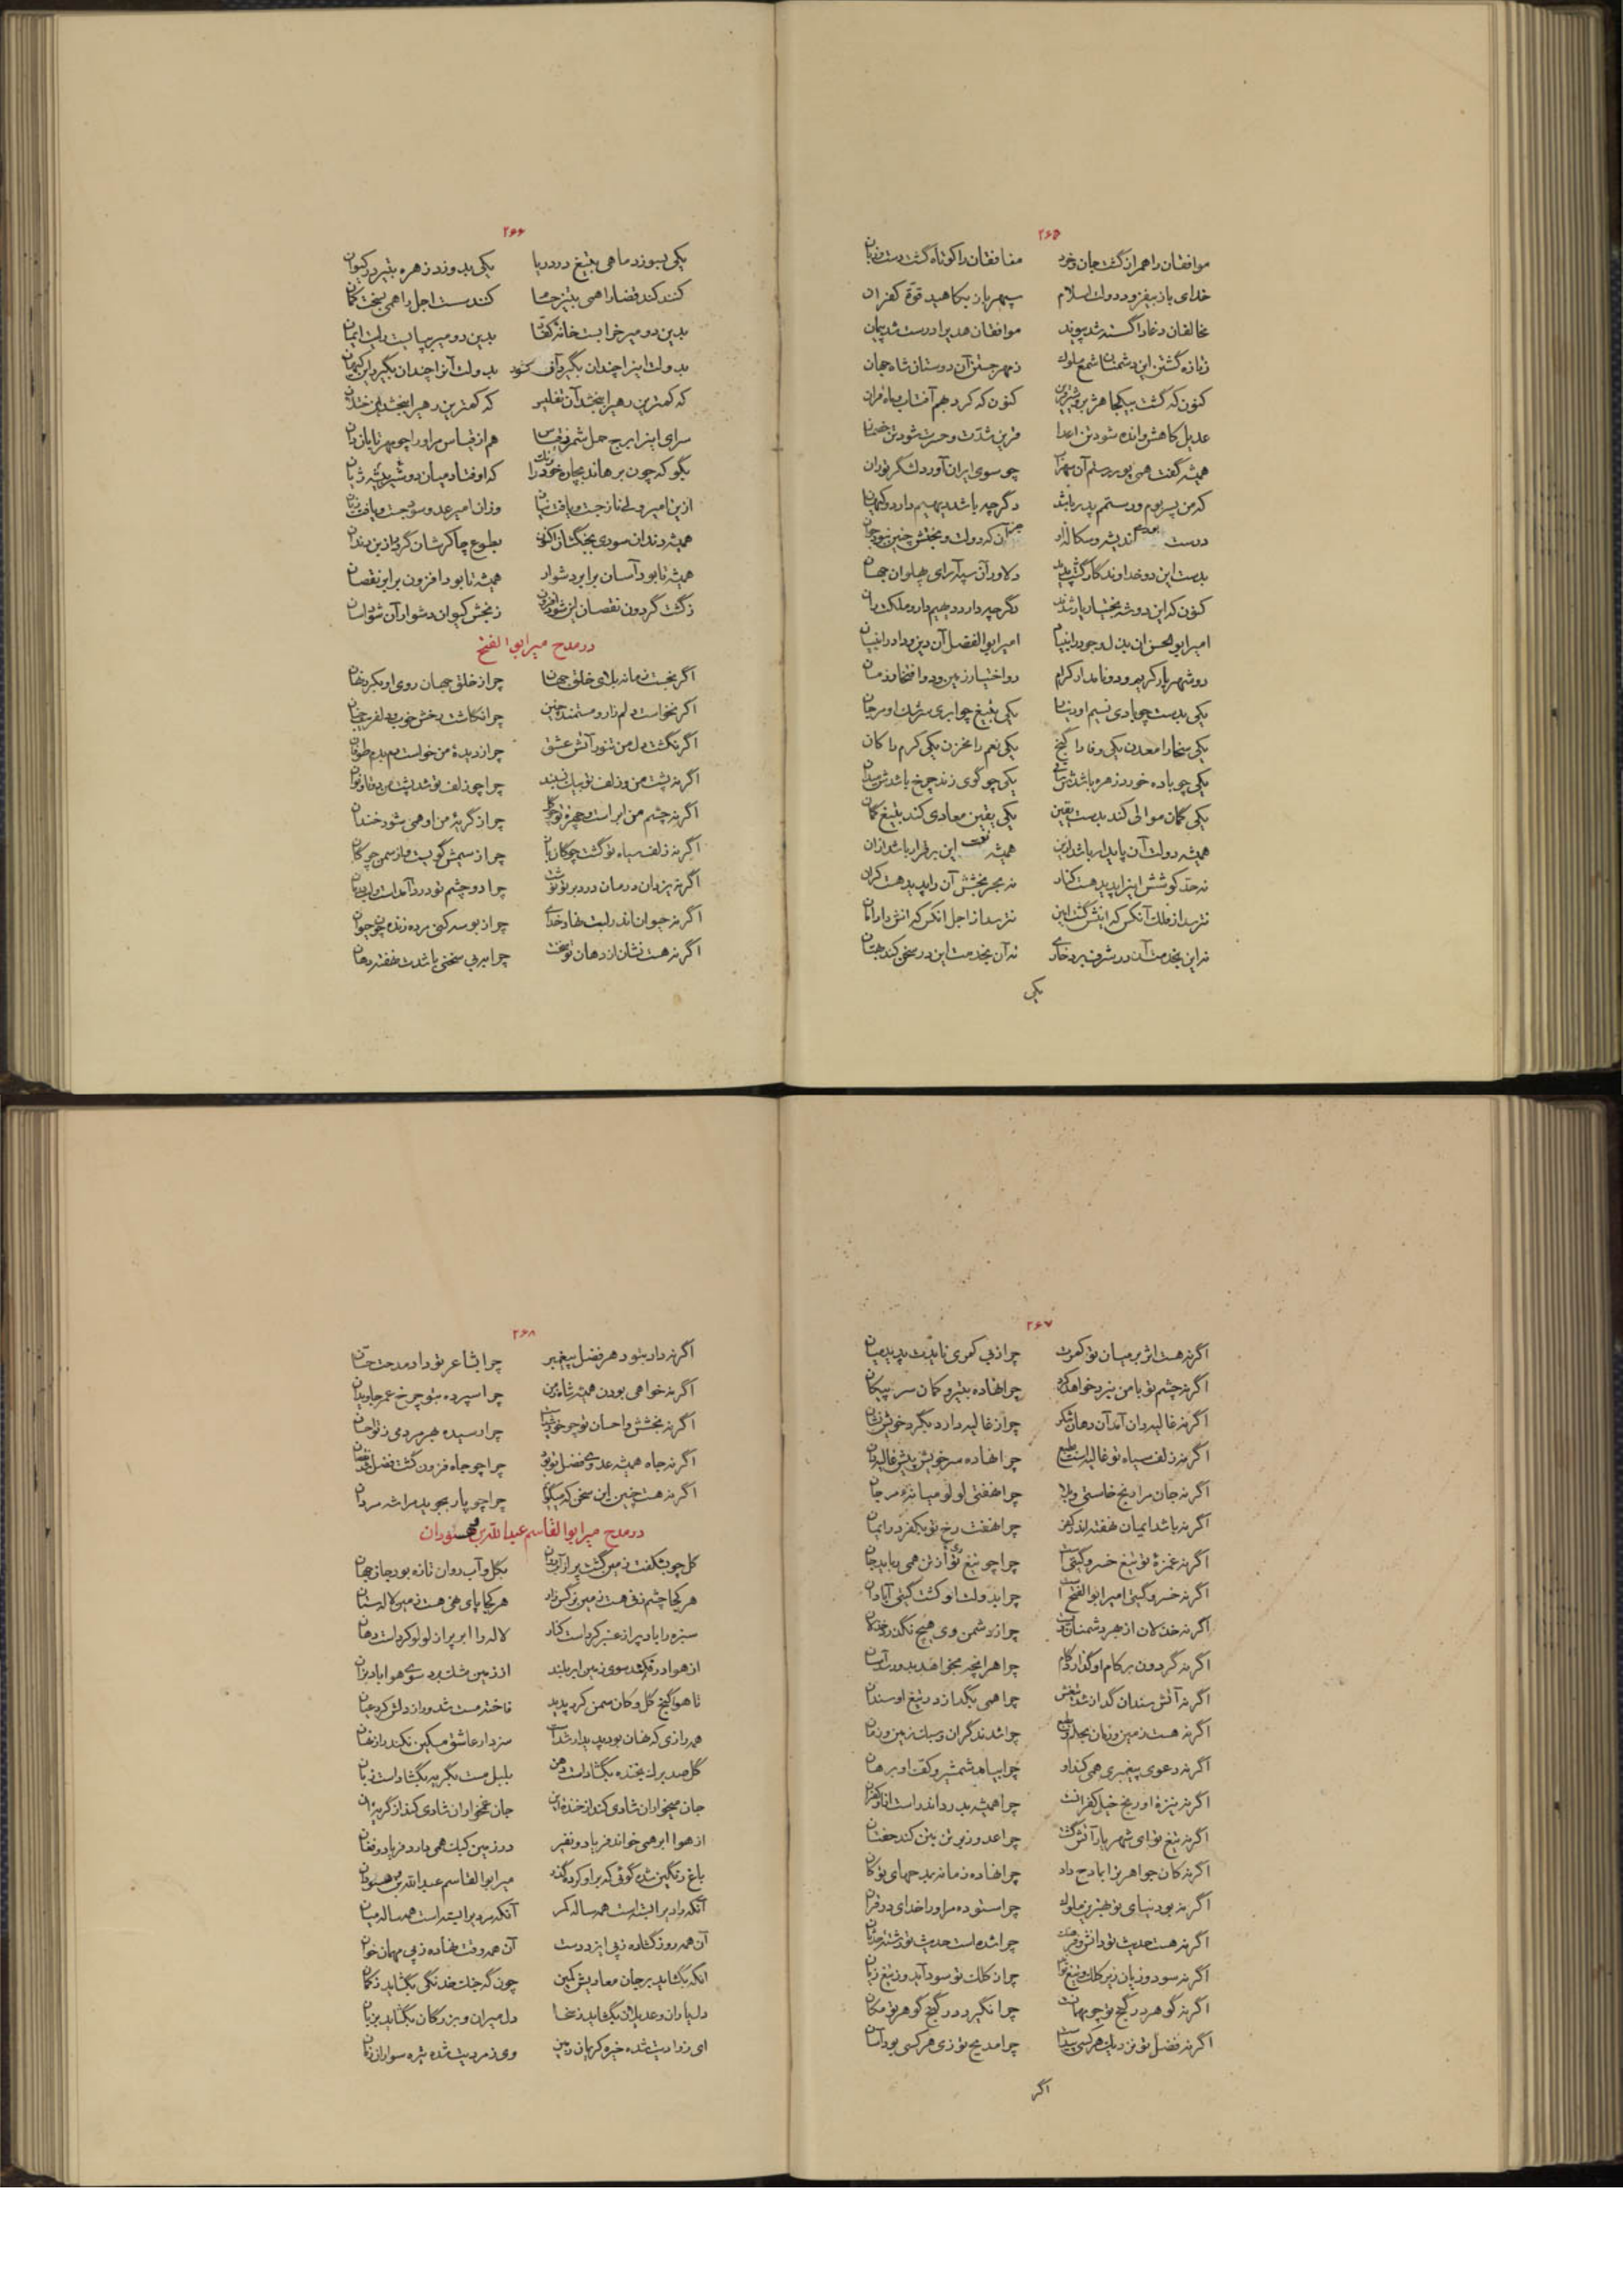 ۲۶۵
موافقان را همراز گشت جان و خرد منافقان را کوتاه گشت دست و زبان
خدای باز بیفزود دولت اسلام سپهر باز بکاهید قوّة کفران
مخالفان دغا را گسسته شد پیوند موافقان هدی را درست شد پیمان
ز تازه گشتن این دشمنان شمع ملوک ز مهر جستن آن دوستان شاه جهان
کنون که گشت بیکجا هژبر و شیر عرین کنون که کرد بهم آفتاب و ماه قران
عدیل کاهش و انده شود تن اعدا قرین شدّت و حسرت شود تن خصمان
همیشه گفت همی پور رستم آن سهراب چو سوی ایران آورد لشگر توران
که من پسر بوم و رستمم پدر باشد دگر چه باشد دیهیم دار در کیهان
درست اندیشه و سکالش او جز آن که دولت و بختش چنین نبود جوان
بدست این دو خداوندگار گشت پدید دلاور آن سپه آرای پهلوان جهان
کنون که این دو شه بختیار یار شدند دگر چه دارد دیهیم دار و ملکت ران
امیر ابوالحسن آن بذل وجود را بنیاد امیر ابوالفضل آن دین و داد را بنیان
دو شهریار کریم و دو نامدار کرام دو اختیار زمین و دو افتخار زمان
یکی بدست چو بادی نسیم او دینار یکی بتیغ چو ابری سرشک او مرجان
یکی سخا را معدن یکی وفا را گنج یکی نعم را مخزن یکی کرم را کان
یکی چو باده خورد زهره باشدش ساقی یکی چو گوی زند چرخ باشدش میدان
یکی گمان موالی کند بدست یقین یکی یقین معادی کند بتیغ گمان
همیشه دولت آن پایدار باشد ازین همیشه نعمت این برقرار باشد ازان
نه حدّ کوشش این را پدید هست کنار نه بحر بخشش آن را پدید هست کران
نترسد از فلک آنکس که اینش گشت امین نترسد از اجل آنکس که آنش داد امان
نه این بخدمت آن در شرف برد خواری نه آن بخدمت این در سخی کند بهتان
یکی
۲۶۶
یکی بسوزد ماهی بتیغ در دریا یکی بدوزد زهره بتیر در کیوان
کنند کند قضا را همی بتیز حسام کنند سست اجل را همی بسخت کمان
بدین دو میر خرابست خانهٔ کفّار بدین دو میر بپایست دولت ایمان
بدولت این را چندان بگیرد آن کنود بدولت آن را چندان بگیرد این کیهان
که کمترین رهی را ببخشد آن تفلیس که کمترین رهی را ببخشد این ختلان
سرای این را برج حمل شمر بقیاس هم از قیاس مر او را چو مهر تابان دان
بگو که چون برهاند بچاره خود را رنگ که اوفتاد میان دو شیر بیشه ژیان
ازین امیر ولی ناز جست و یافت نیاز وزان امیر عدو سود جست و یافت زیان
همیشه دندان سودی بجنگشان اکنون بطوع چاکرشان گرد و از بن دندان
همیشه تا بود آسان برابر دشوار همیشه تا بود افزون برابر نقصان
ز گشت گردون نقصان این شود افزون ز بخش کیوان دشوار آن شود آسان
در مدح میر ابوالفتح
اگر نجست زمانه بلای خلق جهان چرا ز خلق جهان روی او بکرد نهان
اگر نخواست دلم زار و مستمند چنین چرا نکاشت رخش خوب و دلفریب چنان
اگر نگشت دل من تنور آتش عشق چرا ز دیدهٔ من خواست دم بدم طوفان
اگر نه پشت من و زلف تو بیک نسبند چرا چو زلف تو شد پشت من دوتا و نوان
اگر نه چشم من ابر است و چهرهٔ تو گل چرا ز گریهٔ من او همی شود خندان
اگر نه زلف سیاه تو گشت چوگان باز چرا ز سمش گویست و از سمن چوگان
اگر نه یزدان درمان درد بر تو نوشت چرا دو چشم تو درد آمدست و لب درمان
اگر نه حیوان اندر لبت نهاد خدای چرا ز بوسه کنی مرده زنده چون حیوان
اگر نه هست نشان از دهان تو سخنت چرا بر بی سخنی باشدت نهفته دهان
۲۶۷
اگر نه هست اثر بر میان تو کمرت چرا ز بی کمری نایدت پدید میان
اگر نه چشم تو با من نبرد خواهد کرد چرا نهاده بتیر و کمان سر پیکان
اگر نه غالیه‌دان آمد آن دهان شکر چرا ز غالیه دارد بگرد خویش نشان
اگر نه زلف سیاه تو غالیه است بطبع چرا نهاده سر خویش پیش غالیه‌دان
اگر نه جان مرا رنج خاستی و بلا چرا نهفتی لولو میانهٔ مرجان
اگر نباشد ایمان نهفته اندر کفر چرا نهفت رخ تو بکفر در ایمان
اگر نه غمزهٔ تو تیغ خسرو گیتیست چرا چو تیغ وی از تن همی رباید جان
اگر نه خسرو گیتی امیر ابوالفتح است چرا بدولت او گشت گیتی آبادان
اگر نه خذلان از بهر دشمنانش بدست چرا ز دشمن وی هیچ نگذرد خذلان
اگر نه گردون بر کام او گذارد گام چرا هر آنچه بخواهد بدو رسد آسان
اگر نه آتش سندان گداز شد تیغش چرا همی بگدازد ز تیغ او سندان
اگر نه هست زمین و زمان بحلم و بطبع چرا شدند گران و سبک زمین و زمان
اگر نه دعوی پیغمبری همی کند او چرا بیامد شمشیر و کفّ او برهان
اگر نه نیزهٔ او رنج خیل کفرانست چرا همیشه بدرد اندر است ازو کفران
اگر نه تیغ تو ای شهریار آتش گشت چرا عدو ز بر تن بتن کند خفتان
اگر نه کان جواهر ترا بمدح داد چرا نهاده زمانه بمدحهای تو کان
اگر نبود نیای تو بهترین ملوک چرا ستوده مر او را خدای در قرآن
اگر نه هست حدیث تو دانش و فرهنگ چرا شده است حدیث تو نبشتهٔ خلقان
اگر نه سود و زیان زیر کلک و تیغ تو اند چرا ز کلک تو سود آید و ز تیغ زیان
اگر نه گوهر در گنج تو چو مهمانست چرا نگیرد در گنج گوهر تو مکان
اگر نه فضل تو نزدیک هر کسی پیداست چرا مدیح تو زی هر کسی بود آسان
اگر
۲۶۸
اگر نه داد بتو دهر فضل پیغمبر چرا بشاعر تو داد مدحت حسّان
اگر نه خواهی بودن همیشه شاه زمین چرا سپرده بتو چرخ عمر جاویدان
اگر نه بخشش و احسان تو چو خورشید است چرا رسیده بهر مردمی ز تو احسان
اگر نه جاه همیشه عدوی فضل تو بود چرا چو جاه فزون گشت فضل شد نقصان
اگر نه هست چنین این سخن که میگویم چرا چو پار بجوید مرا شه مردان
در مدح میر ابوالقاسم عبدالله بن وهسودان
گل چو بشکفت زمین گشت پر از آب روان بگل و آب روان تازه بود جان جهان
هر کجا چشم زنی هست زمین نرگس زار هر کجا پای نهی هست زمین لاله ستان
سبزه را باد پر از عنبر کرد است کنار لاله را ابر پر از لولو کرد است دهان
از هوا در فکند سوی زمین ابر بلند از زمین مشک برد سوی هوا باد بزان
تا هوا گنج گل و کان سمن کرد پدید فاخته مست شد و راز دلش کرد عیان
همه رازی که نهان بود پدیدار شد است سزد ار عاشق مسکین نکند راز نهان
گل صدبرگ بخنده بگشاداست دهن بلبل مست بگریه بگشاداست زبان
جان میخواران شادی کند از خنده این جان غمخواران شادی کند از گریه آن
از هوا ابر همی خواند فریاد و نفیر در زمین کبک همی دارد فریاد و فغان
باغ رنگین شده گوئی که بر او کرده گذر میر ابوالقاسم عبدالله بن وهسودان
آنکه رادی را بسته است همه ساله کمر آنکه مردی را بسته است همه ساله میان
آن همه روز گشاده ز پی ایزد دست آن همه وقت نهاده ز پی مهمان خوان
آنکه بگشاید بر جان معادیش کمین چون گه جنگ خدنگی بگشاید ز کمان
دل یاران و عدیلان بگشاید ز سخا دل میران و بزرگان بگشاید بزبان
ای ز رادیت شده خیره کریمان زمین وی ز مردیت شده تیره سواران زمان